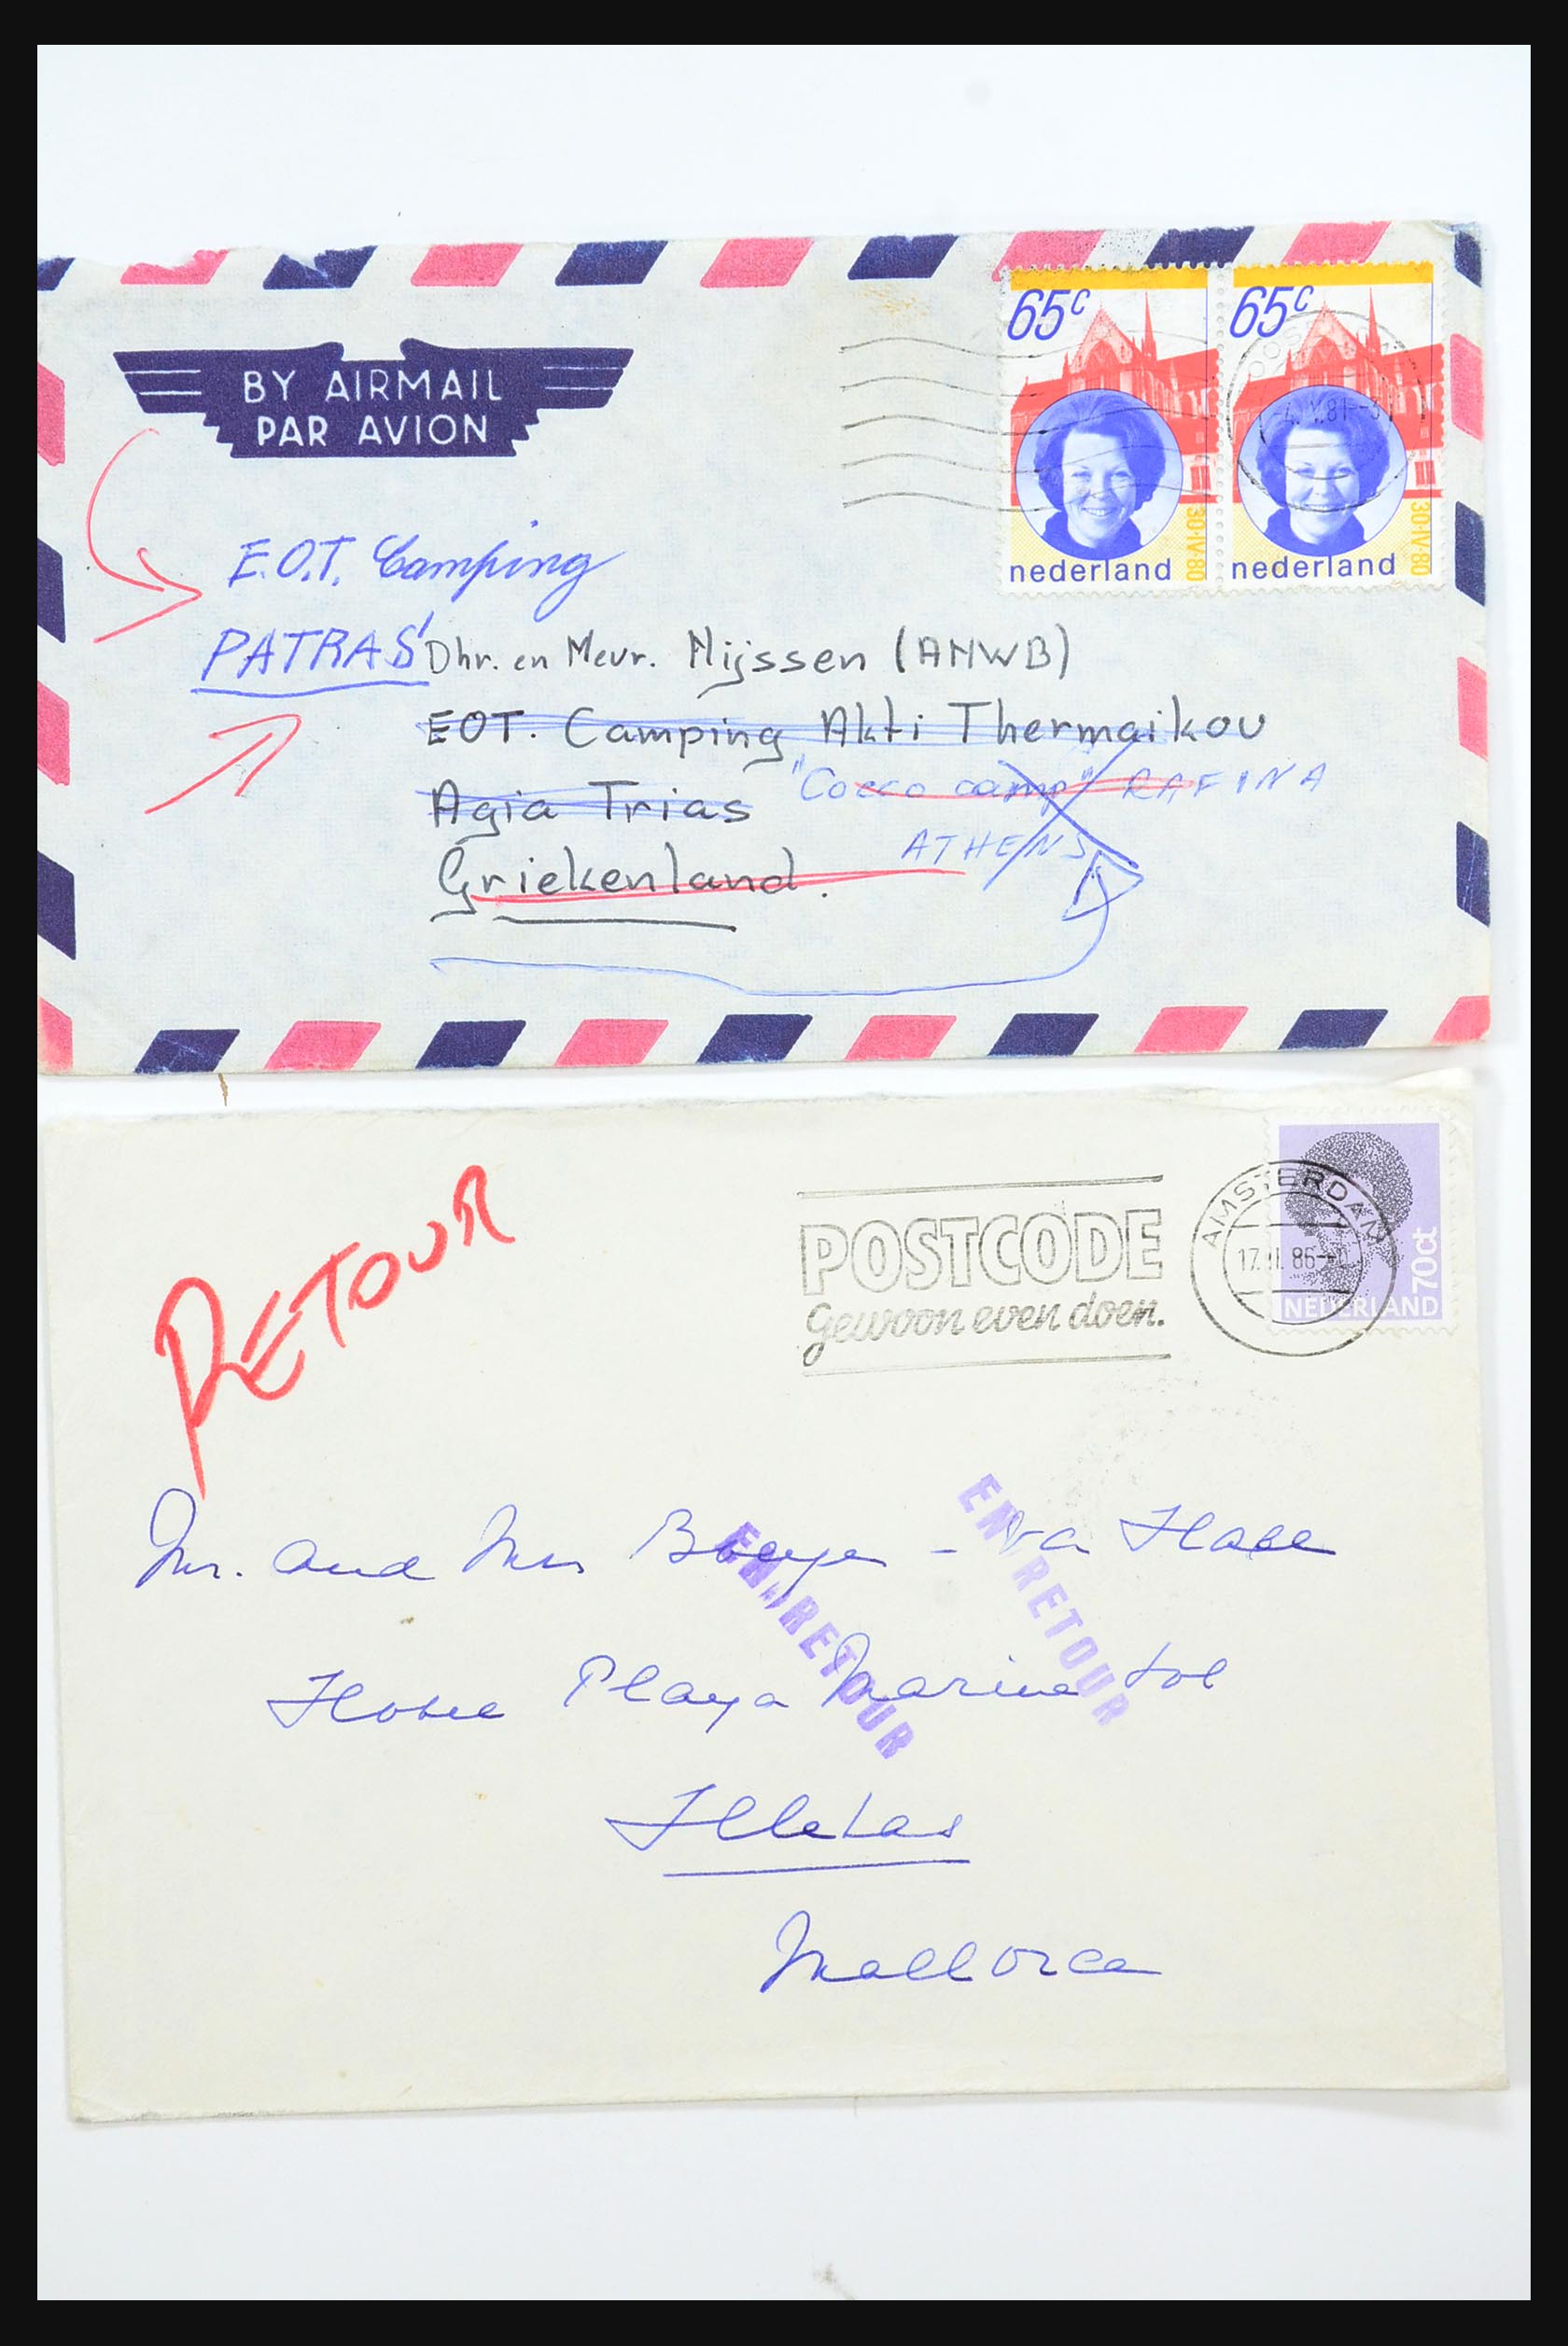 BY AIRMAIL
PAR AVION
65c 65c
-4.V.81
30·IV·80 30·IV·80
nederland nederland
E.O.T. Camping
PATRAS
Dhr. en Mevr. Nijssen (ANWB)
EOT. Camping Akti Thermaikou
Agia Trias
"Cocco camp" RAFINA
ATHENS
Griekenland.
RETOUR
POSTCODE
gewoon even doen.
AMSTERDAM
86
70ct
NEDERLAND
EN RETOUR
EN RETOUR
Mr. and Mrs
Hotel Playa Marina Sol
Illetas
Mallorca